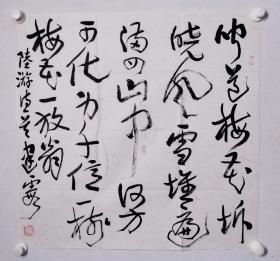 闻道梅花坼
晓风雪堆遍
满四山中何方
可化为千億一树
梅花一放翁
陸游诗